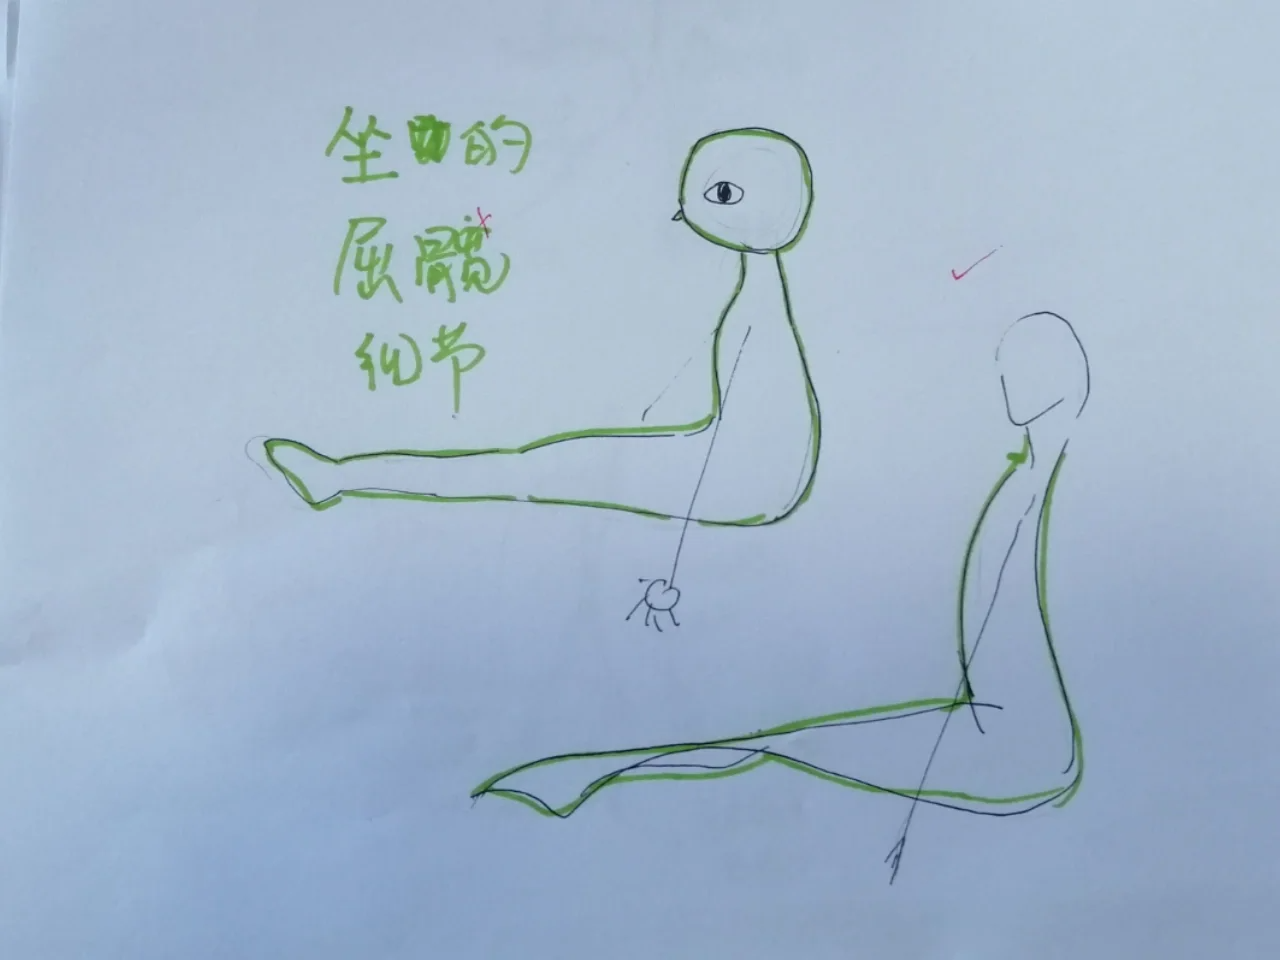 坐的
屈髋
细节